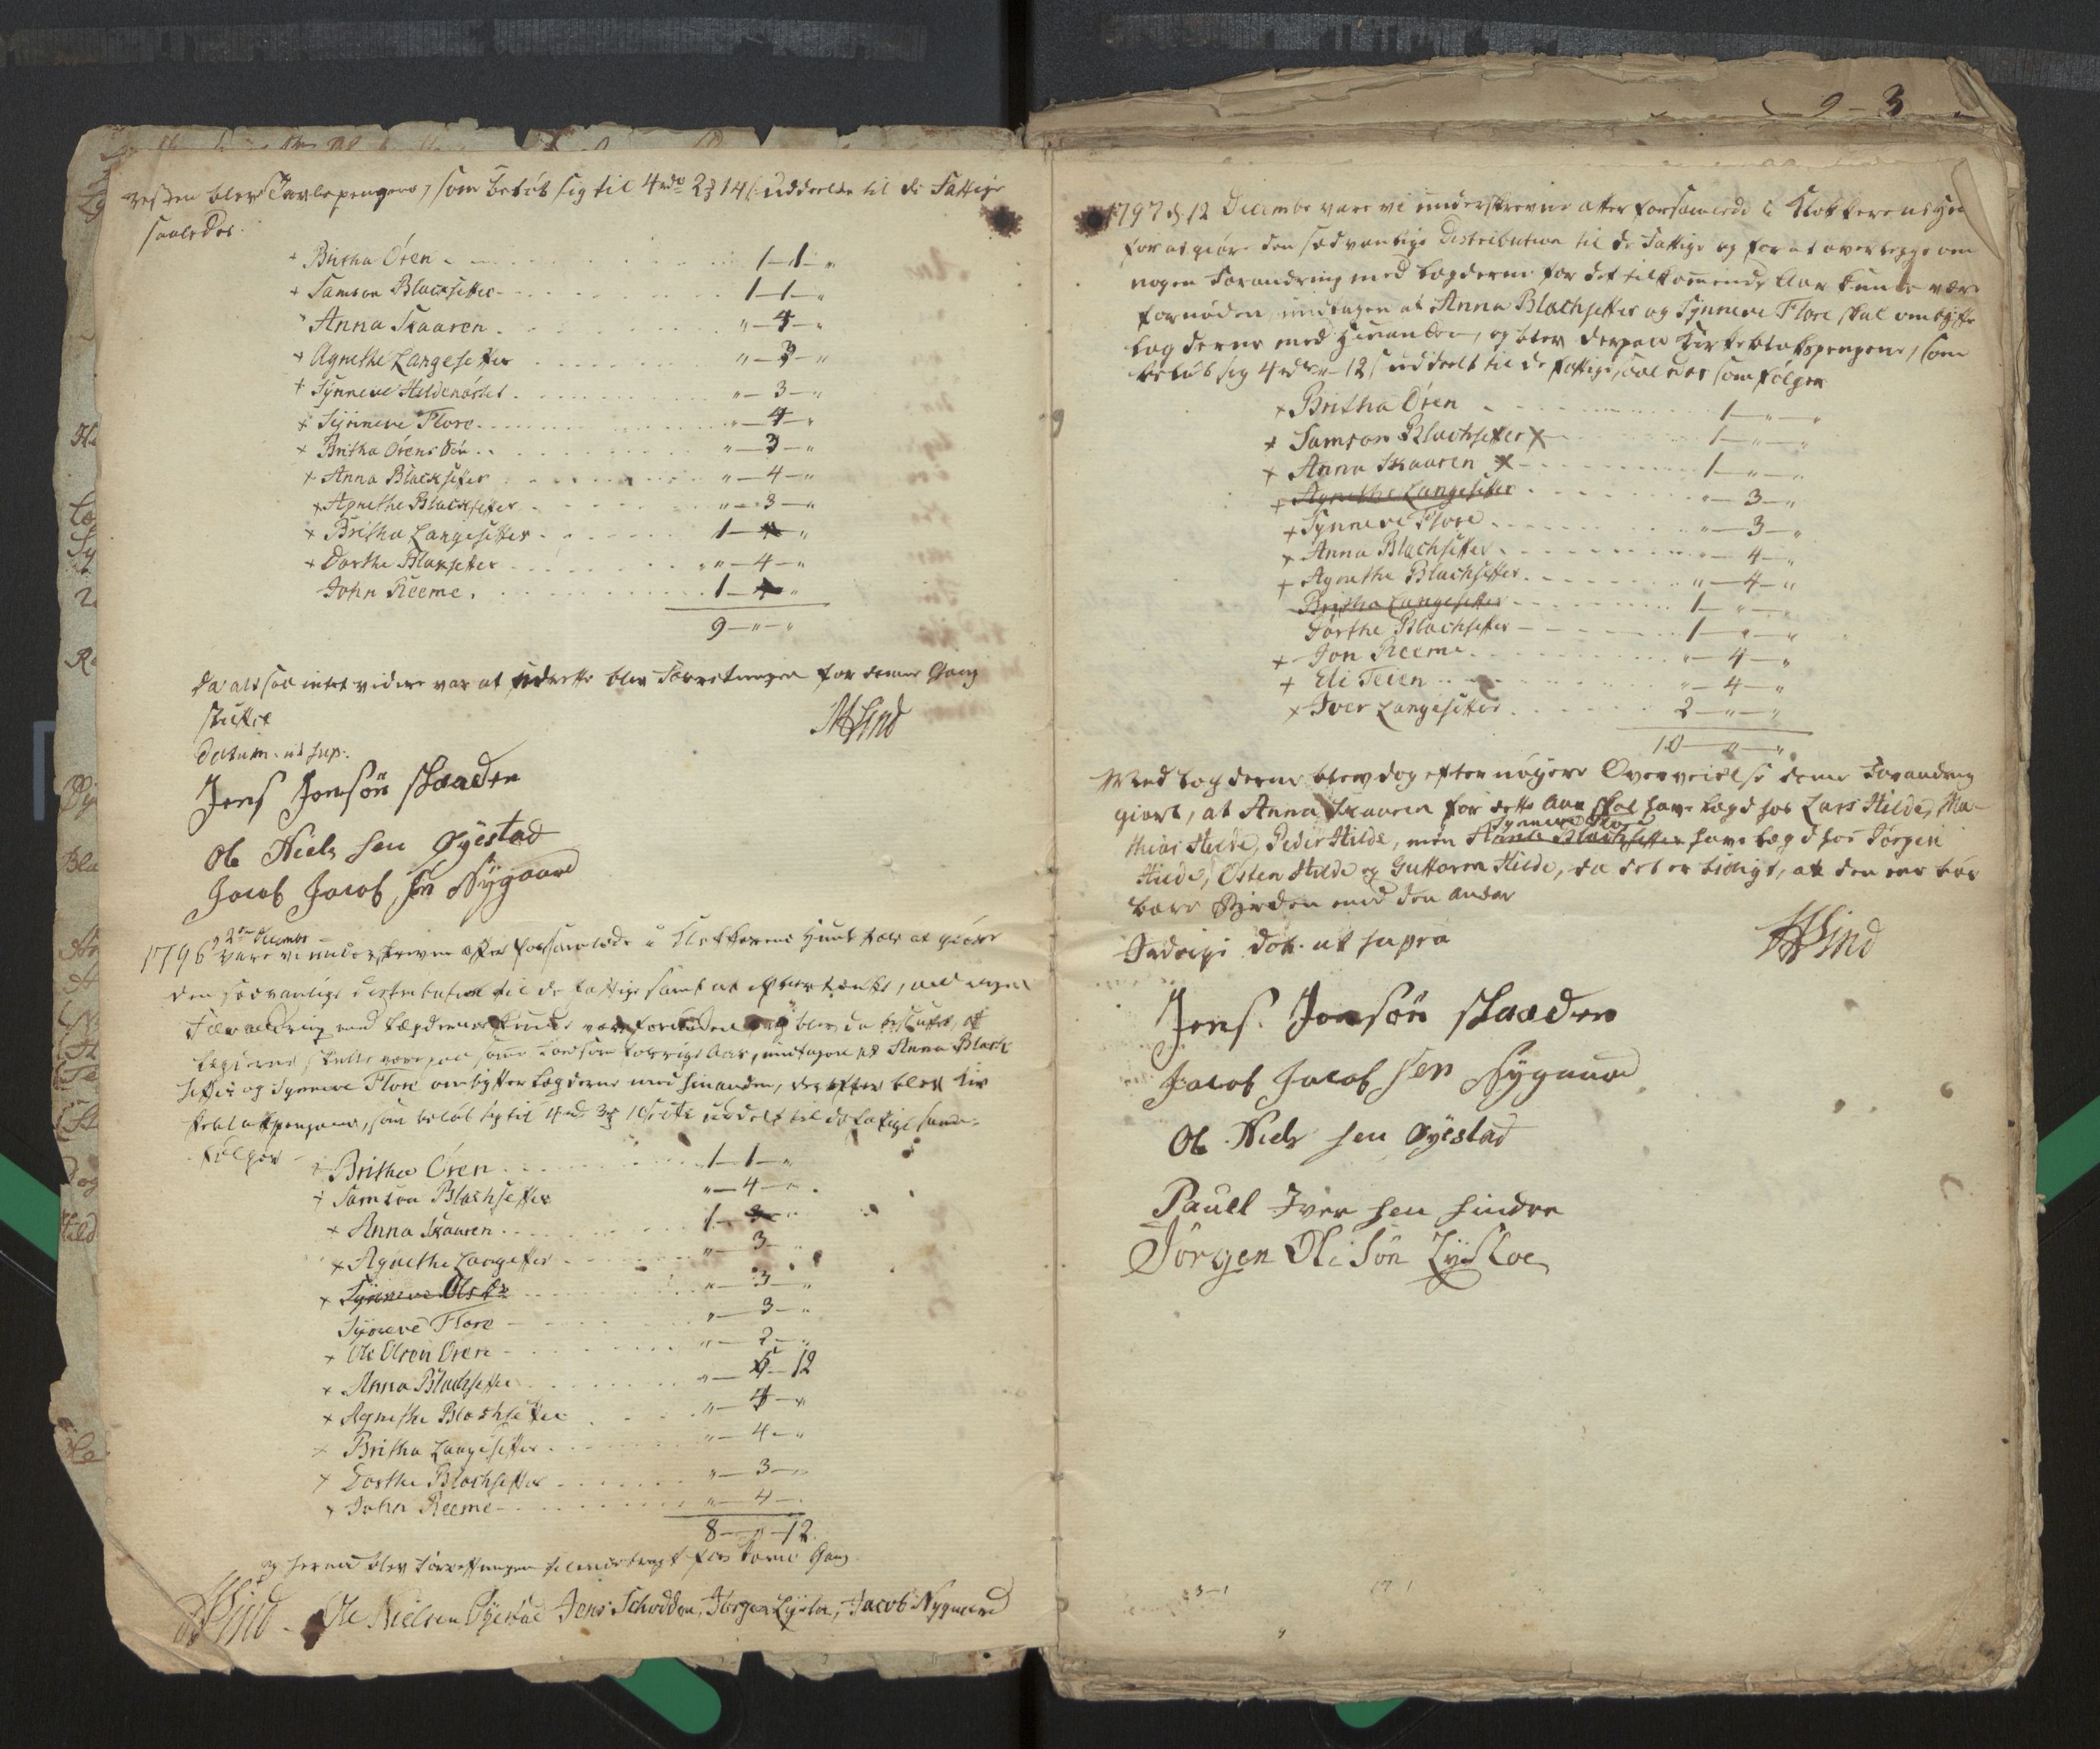 blev Tavlepengene, som beløb sig til 4 rdr 2 14 s uddeelte til de Fattige
saaledes.
+ Britha Ören 1-1-"
+ Samson Blachsetter 1-1-"
Anna Skaaren "-4-"
+ Agnethe Langesetter "-3-"
+ Synneve Hildenöset "-3-"
+ Synneve Flore "-4-"
+ Britha Örens "-3-"
+ Anna Blacksetter "-4-"
+ Agnethe Blacksetter "-3-"
+ Britha Langesetter 1- "
+ Dorthe Blaksetter "-4-"
John Reeme 1- "
9-"-"
Da altsaa intet videre var at udrette blev Forretningen for denne Gang
sluttet
HLind
Datum ut sup:
Jens Jonsön skaaden
Ole Niels sen Øyestad
Jacob Jacob sen Nygaard
1796 2den December vare vi underskrevne atter forsamlede i Klokkerens Huus for at giöre
den sædvanlige distribution til de fattige samt at eftertænke, om nogen
Forandring med Lægderne kunde være fornöden og blev da besluttet, at
Lægderne skulle være paa samme Fod som forrige Aar, undtagen at Anna Black
setter og Synneve Flore ombytter Lægderne med hinanden, derefter blev Kir
keblokpengene, som beløb sig til 4 rd 3 uddelt til de fattige som
fölger
+ Britha Ören 1-1-"
+ Samson Blachsetter "-4-"
+ Anna Skaaren 1- "
+ Agnethe Langesetter "-3-"
+ Synneve "-3-"
Synneve Flore "-3-"
+ Ole Olsen Ören "-2-"
+ Anna Blachsetter "-5-12
+ Agnethe Blachsetter "-4-"
+ Britha Langesetter "-4-"
+ Dorthe Blachsetter "-3-"
+ John Reeme "-4-
8-"-12
og hermed blev Forretningen tilendebragt for denne Gang
HLind Ole Nielsen Öyestad Jens Schodden, Jörgen Lysloe, Jacob Nygaard
9-3
1797 d. 12 December vare vi underskrevne atter forsamlede i Klokkerens Huus
for at giøre den sædvanlige Distribution til de Fattige og for at overlegge om
nogen Forandring med Lægderne for det tilkommende Aar kunde være
fornøden, undtagen at Anna Blachsetter og Synneve Flore skal ombytte
Lægderne med hinanden, og blev derpaa Kirkeblokspengene, som
beløb sig 4 rdr "-12 s uddeelt til de fattige, saaledes som følger
+ Britha Ören 1-"-"
+ Samson Blachsetter x 1-"-"
+ Anna Skaaren x 1-"-"
+ Agnethe Langesetter "-3-"
+ Synneve Flore "-3-"
+ Anna Blachsetter "-4-"
+ Agnethe Blachsetter "-4-"
Britha Langesetter 1-"-"
Dorthe Blachsetter 1-"-"
+ Jon Reeme "-4-"
+ Eli Teien "-4-"
+ Iver Langesetter 2-"-"
10-"-"
Med Lægderne blev dog efter nøyere Overveielse denne Forandring
giort, at Anna Skaaren for dette Aar skal have Lægd hos Lars Hilde, Ma-
thias Hilde, Peder Hilde, men Synneve Flore Anna Blachsetter have Lægd hos Jörgen
Hilde, Östen Hilde og Guttorm Hilde, da det er billigt, at den ene bör
bære Byrden med den anden
dat. ut supra
HLind
Jens Jonsön skaaden
Jacob Jacob sen Nygaard
Ole Niels sen Øyestad
Pauel Iver sen hindre
Jörgen Ole Sön Lysloe